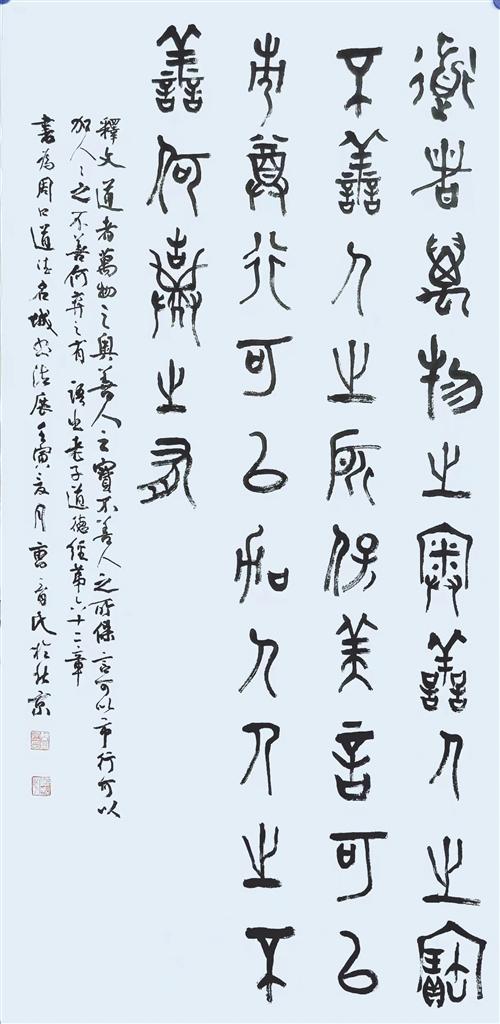 道者萬物之奧善人之寶
不善人之所保美言可以
市尊行可以加人人之不
善何棄之有
釋文 道者萬物之奧善人之寶不善人之所保言可以市行可以
加人々之不善何弃之有 語出老子道德經第六十二章
書為周口道德名城書法展壬寅夏月 育民於北京